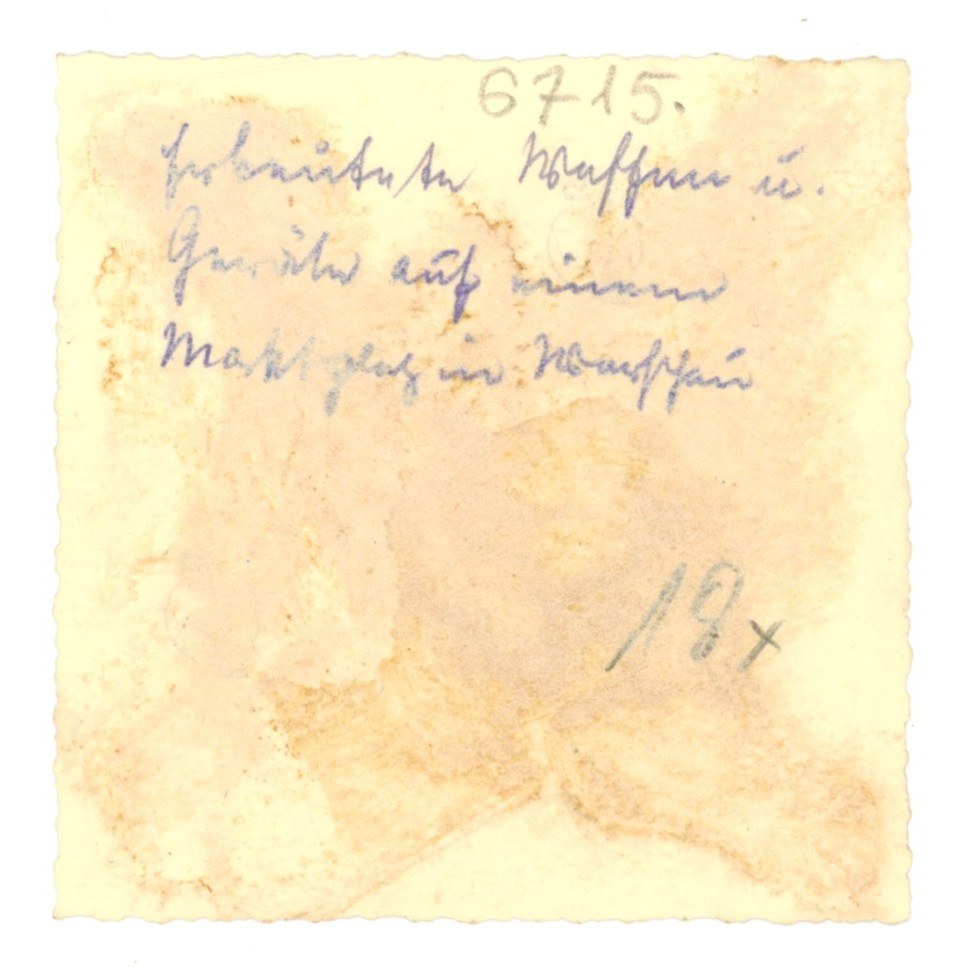 6715.
Erbeutete Waffen u.
Geräte auf einem
Marktplatz in Warschau
18x